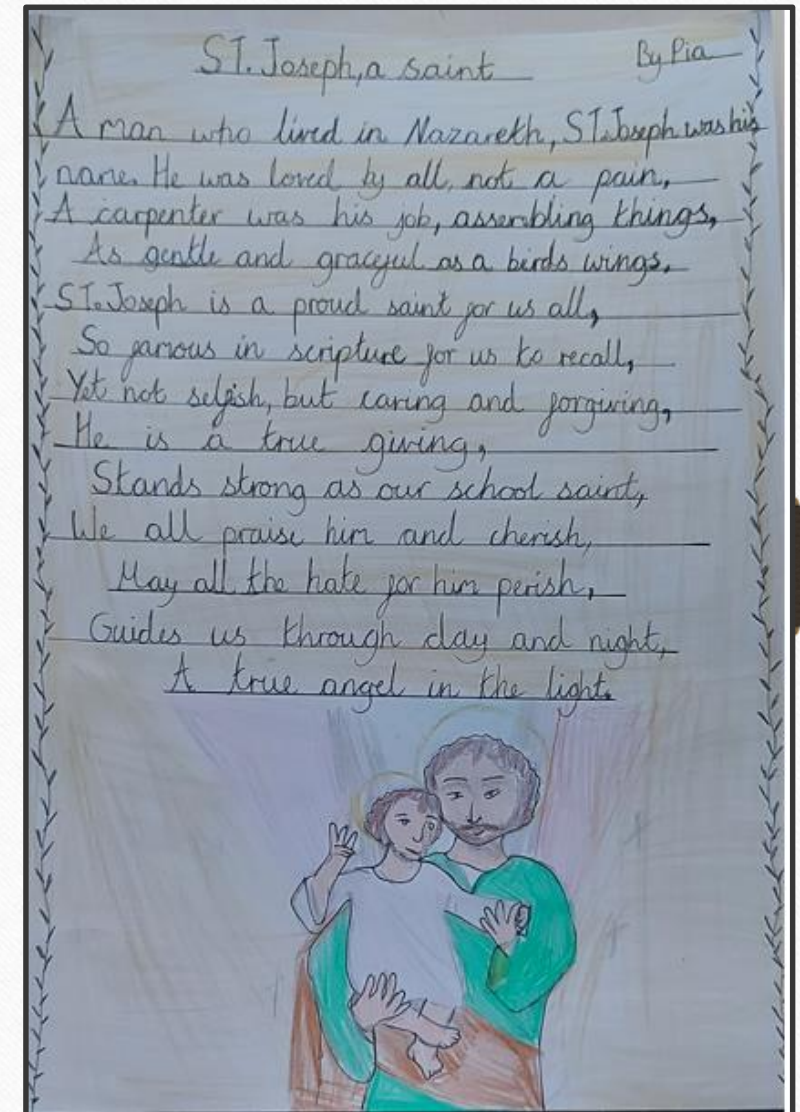 ST. Joseph, a saint
By Pia
A man who lived in Nazareth, ST. Joseph was his
name. He was loved by all, not a pain,
A carpenter was his job, assembling things,
As gentle and graceful as a birds wings.
ST. Joseph is a proud saint for us all,
So famous in scripture for us to recall,
Yet not selfish, but caring and forgiving,
He is a true giving,
Stands strong as our school saint,
We all praise him and cherish,
May all the hate for him perish,
Guides us through day and night,
A true angel in the light.